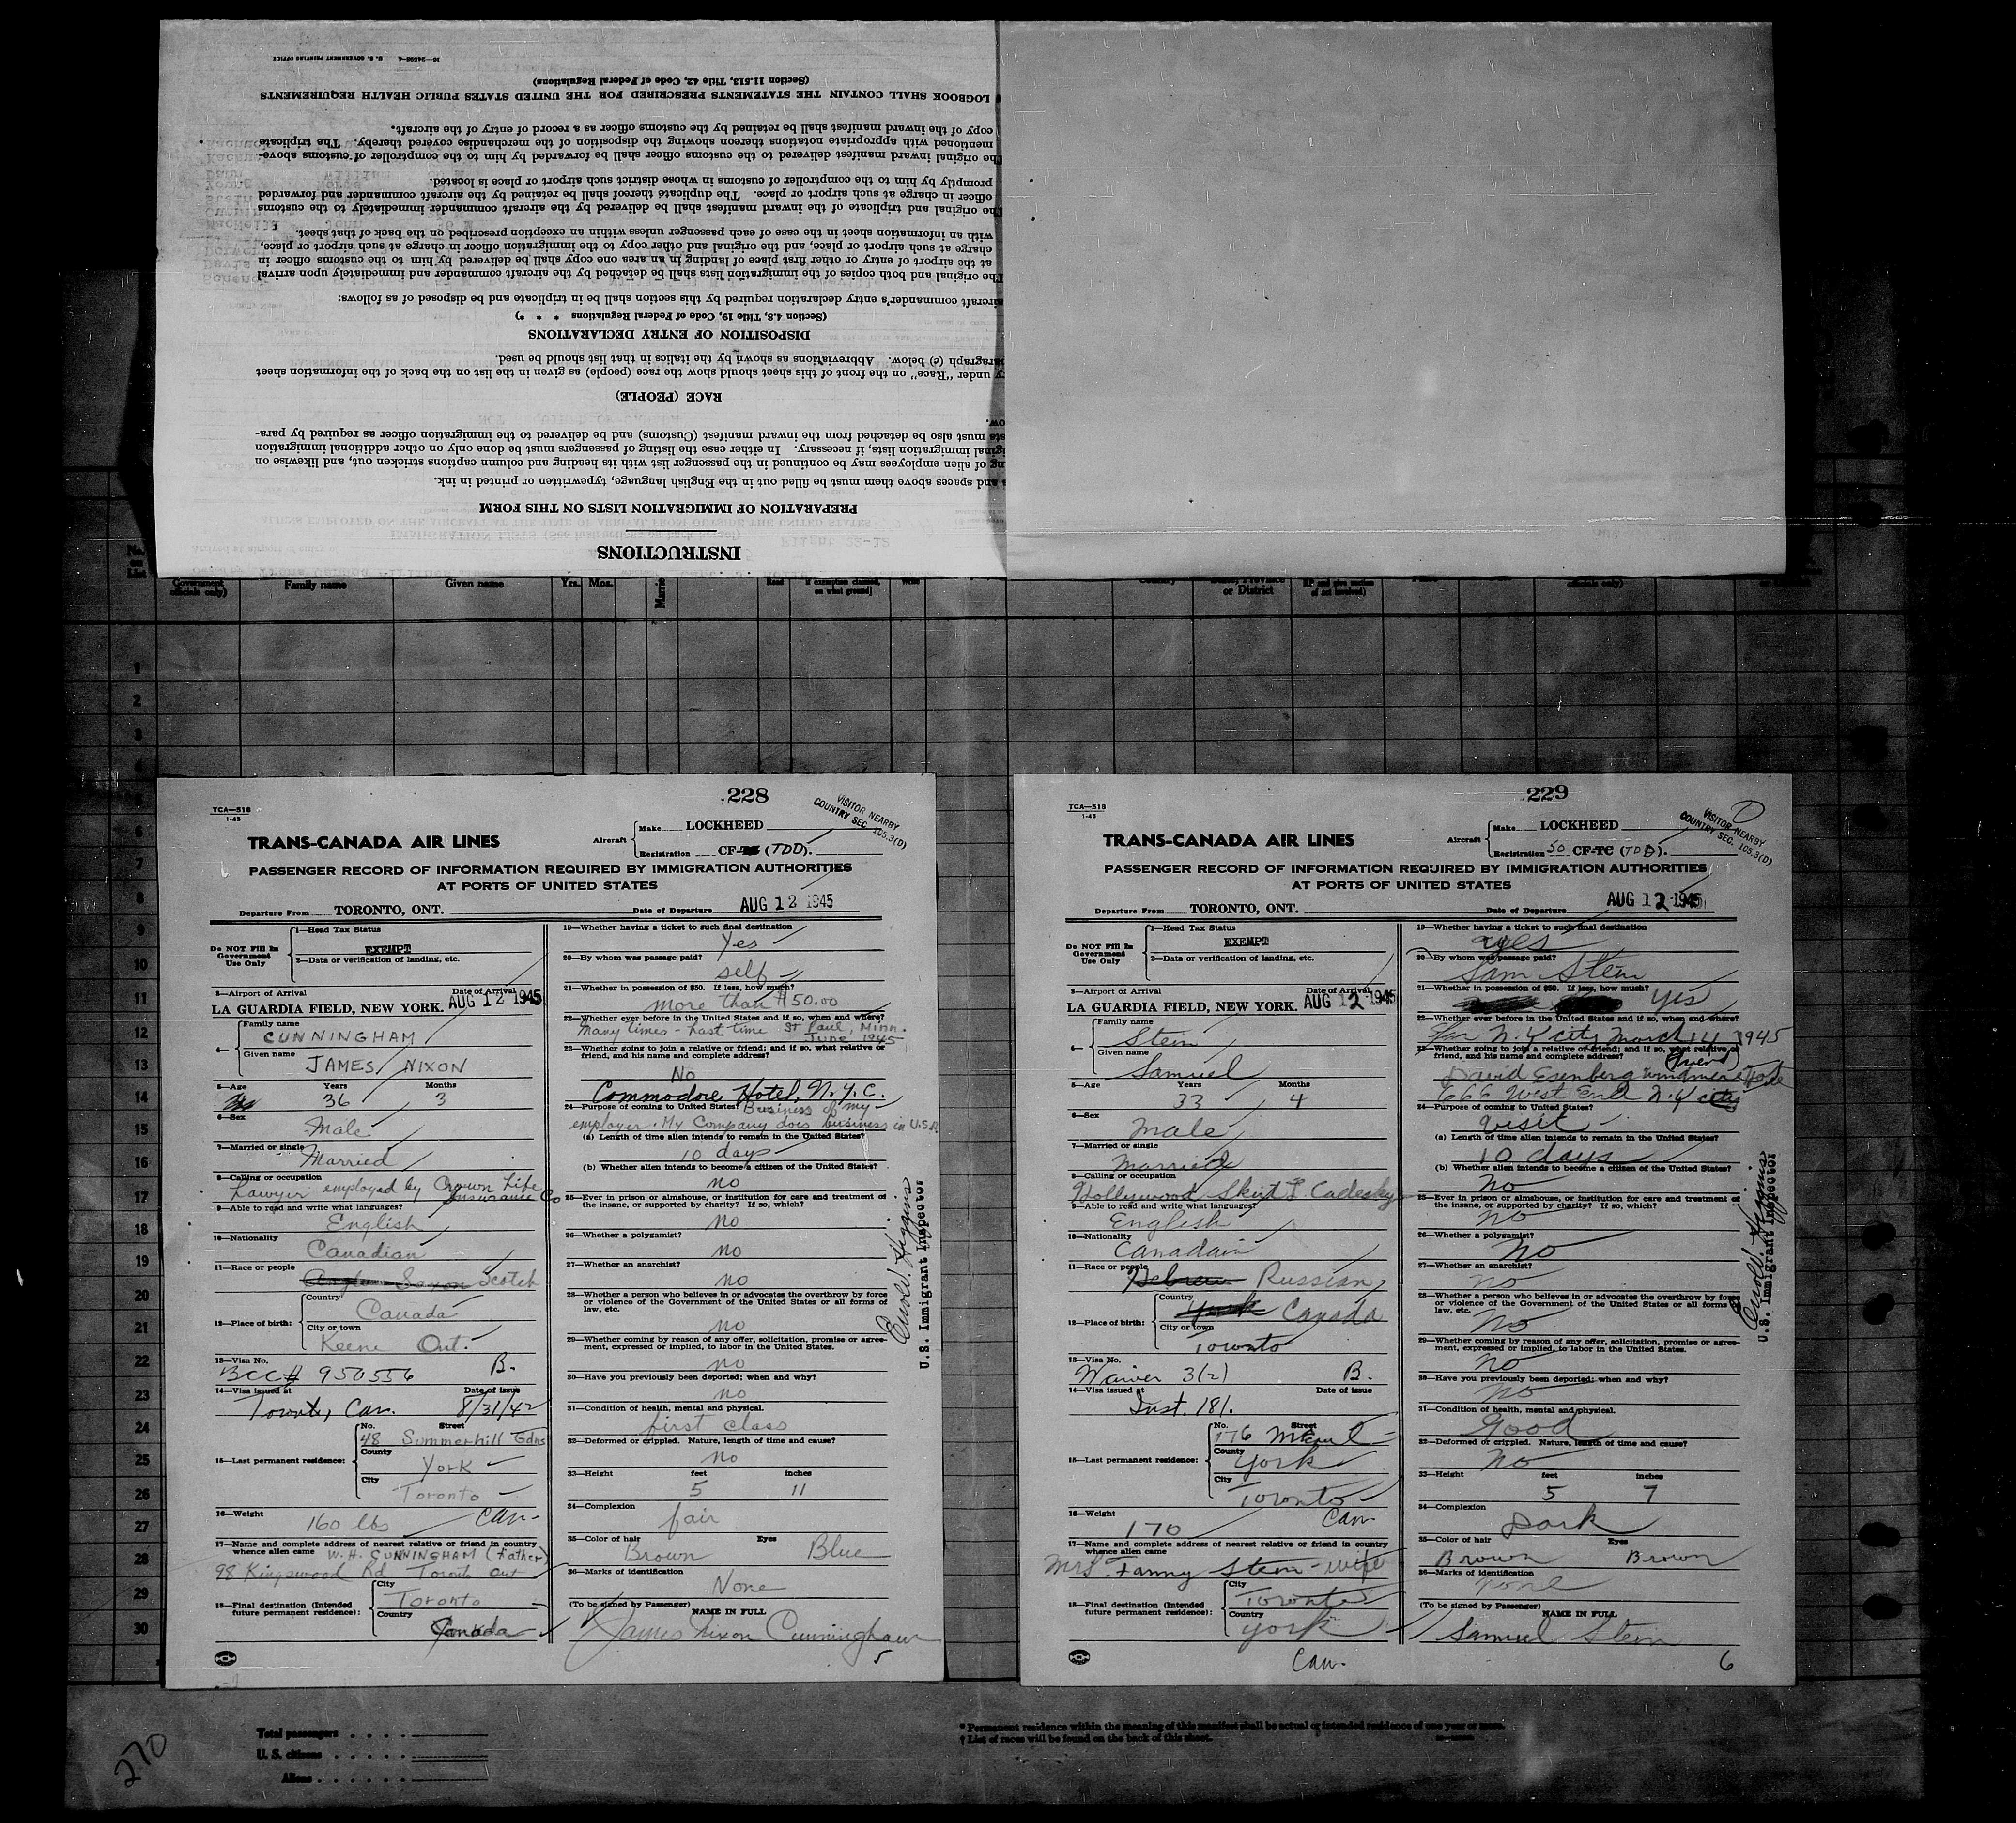 INSTRUCTIONS
PREPARATION OF IMMIGRATION LISTS ON THIS FORM
and spaces above them must be filled out in the English language, typewritten or printed in ink.
of alien employees may be continued in the passenger list with its heading and column captions stricken out, and likewise on
immigration lists, if necessary. In either case the listing of passengers must be done only on other additional immigration
must also be detached from the inward manifest (Customs) and be delivered to the immigration officer as required by para-
RACE (PEOPLE)
under "Race" on the front of this sheet should show the race (people) as given in the list on the back of the information sheet
paragraph (c) below. Abbreviations as shown by the italics in that list should be used.
DISPOSITION OF ENTRY DECLARATIONS
(Section 4.8, Title 19, Code of Federal Regulations * * *)
aircraft commander's entry declaration required by this section shall be in triplicate and be disposed of as follows:
The original and both copies of the immigration lists shall be detached by the aircraft commander and immediately upon arrival
at the airport of entry or other first place of landing in an area one copy shall be delivered by him to the customs officer in
charge at such airport or place, and the original and other copy to the immigration officer in charge at such airport or place,
with an information sheet in the case of each passenger unless within an exception prescribed on the back of that sheet.
The original and triplicate of the inward manifest shall be delivered by the aircraft commander immediately to the customs
officer in charge at such airport or place. The duplicate thereof shall be retained by the aircraft commander and forwarded
promptly by him to the comptroller of customs in whose district such airport or place is located.
The original inward manifest delivered to the customs officer shall be forwarded by him to the comptroller of customs above-
mentioned with appropriate notations thereon showing the disposition of the merchandise covered thereby. The triplicate
copy of the inward manifest shall be retained by the customs officer as a record of entry of the aircraft.
LOGBOOK SHALL CONTAIN THE STATEMENTS PRESCRIBED FOR THE UNITED STATES PUBLIC HEALTH REQUIREMENTS
(Section 11.513, Title 42, Code of Federal Regulations)
U. S. GOVERNMENT PRINTING OFFICE
No. on List
Government officials only)
Family name
Given name
Yrs. Mos.
Read
if exemption claimed, on what ground]
Write
or District
officials only)
1
2
3
228
TCA—518
1-45
VISITOR NEARBY
COUNTRY SEC. 105.3(D)
TRANS-CANADA AIR LINES
Aircraft Make LOCKHEED
Registration CF- (TDD).
PASSENGER RECORD OF INFORMATION REQUIRED BY IMMIGRATION AUTHORITIES
AT PORTS OF UNITED STATES
Departure From TORONTO, ONT. Date of Departure AUG 12 1945
Do NOT Fill In Government Use Only
1—Head Tax Status
EXEMPT
2—Data or verification of landing, etc.
3—Airport of Arrival Date of Arrival
LA GUARDIA FIELD, NEW YORK. AUG 12 1945
4— Family name
CUNNINGHAM
Given name
JAMES NIXON
5—Age Years Months
36 3
6—Sex
Male
7—Married or single
Married
8—Calling or occupation
Lawyer employed by Crown Life Insurance Co
9—Able to read and write what languages?
English
10—Nationality
Canadian
11—Race or people
Anglo Saxon Scotch
12—Place of birth: Country
Canada
City or town
Keene Ont.
13—Visa No.
BCC# 950556 B.
14—Visa issued at Date of issue
Toronto, Can. 8/31/42
15—Last permanent residence: No. Street
48 Summerhill Gdns
County
York
City
Toronto
16—Weight
160 lbs Can-
17—Name and complete address of nearest relative or friend in country
whence alien came W. H. CUNNINGHAM (Father)
98 Kingswood Rd Toronto Ont
18—Final destination (Intended future permanent residence): City
Toronto
Country
Canada
19—Whether having a ticket to such final destination
Yes
20—By whom was passage paid?
self
21—Whether in possession of $50. If less, how much?
more than $50.00
22—Whether ever before in the United States and if so, when and where?
Many times - last time St Paul, Minn.
June 1945
23—Whether going to join a relative or friend; and if so, what relative or
friend, and his name and complete address?
No
Commodore Hotel, N.Y.C.
24—Purpose of coming to United States? Business of my
employer. My Company does business in U.S.A.
(a) Length of time alien intends to remain in the United States?
10 days
(b) Whether alien intends to become a citizen of the United States?
no
25—Ever in prison or almshouse, or institution for care and treatment of
the insane, or supported by charity? If so, which?
no
26—Whether a polygamist?
no
27—Whether an anarchist?
no
28—Whether a person who believes in or advocates the overthrow by force
or violence of the Government of the United States or all forms of
law, etc.
no
29—Whether coming by reason of any offer, solicitation, promise or agree-
ment, expressed or implied, to labor in the United States.
no
30—Have you previously been deported; when and why?
no
31—Condition of health, mental and physical.
first class
32—Deformed or crippled. Nature, length of time and cause?
no
33—Height feet inches
5 11
34—Complexion
fair
35—Color of hair Eyes
Brown Blue
36—Marks of identification
None
(To be signed by Passenger) NAME IN FULL
James Nixon Cunningham
5
U.S. Immigrant Inspector
229
TCA—518
1-45
VISITOR NEARBY
COUNTRY SEC. 105.3(D)
TRANS-CANADA AIR LINES
Aircraft Make LOCKHEED
Registration 50 CF-TC (TDD).
PASSENGER RECORD OF INFORMATION REQUIRED BY IMMIGRATION AUTHORITIES
AT PORTS OF UNITED STATES
Departure From TORONTO, ONT. Date of Departure AUG 12 1945
Do NOT Fill In Government Use Only
1—Head Tax Status
EXEMPT
2—Data or verification of landing, etc.
3—Airport of Arrival Date of Arrival
LA GUARDIA FIELD, NEW YORK. AUG 12 1945
4— Family name
Stein
Given name
Samuel
5—Age Years Months
33 4
6—Sex
Male
7—Married or single
Married
8—Calling or occupation
Hollywood Skirt & Cadesky
9—Able to read and write what languages?
English
10—Nationality
Canadain
11—Race or people
Hebrew Russian
12—Place of birth: Country
York Canada
City or town
Toronto
13—Visa No.
Waiver 3(2) B.
14—Visa issued at Date of issue
Inst. 181.
15—Last permanent residence: No. Street
176
County
York
City
Toronto
16—Weight
170 Can.
17—Name and complete address of nearest relative or friend in country
whence alien came
Mrs. Fanny Stein - wife
18—Final destination (Intended future permanent residence): City
Toronto
Country
York
Can.
19—Whether having a ticket to such final destination
yes
20—By whom was passage paid?
Sam Stein
21—Whether in possession of $50. If less, how much?
yes
22—Whether ever before in the United States and if so, when and where?
N.Y city March 14 1945
23—Whether going to join a relative or friend; and if so, what relative or
friend, and his name and complete address? (friend)
David Esenberg Windmere Hotel
666 West End N.Y city
24—Purpose of coming to United States?
Visit
(a) Length of time alien intends to remain in the United States?
10 days
(b) Whether alien intends to become a citizen of the United States?
No
25—Ever in prison or almshouse, or institution for care and treatment of
the insane, or supported by charity? If so, which?
no
26—Whether a polygamist?
No
27—Whether an anarchist?
no
28—Whether a person who believes in or advocates the overthrow by force
or violence of the Government of the United States or all forms of
law, etc.
No
29—Whether coming by reason of any offer, solicitation, promise or agree-
ment, expressed or implied, to labor in the United States.
No
30—Have you previously been deported; when and why?
No
31—Condition of health, mental and physical.
Good
32—Deformed or crippled. Nature, length of time and cause?
No
33—Height feet inches
5 7
34—Complexion
Dark
35—Color of hair Eyes
Brown Brown
36—Marks of identification
none
(To be signed by Passenger) NAME IN FULL
Samuel Stein
6
U.S. Immigrant Inspector
6
7
8
9
10
11
12
13
14
15
16
17
18
19
20
21
22
23
24
25
26
27
28
29
30
Total passengers
U. S. citizens
Aliens
* Permanent residence within the meaning of this manifest shall be actual or intended residence of one year or more.
† List of races will be found on the back of this sheet.
270